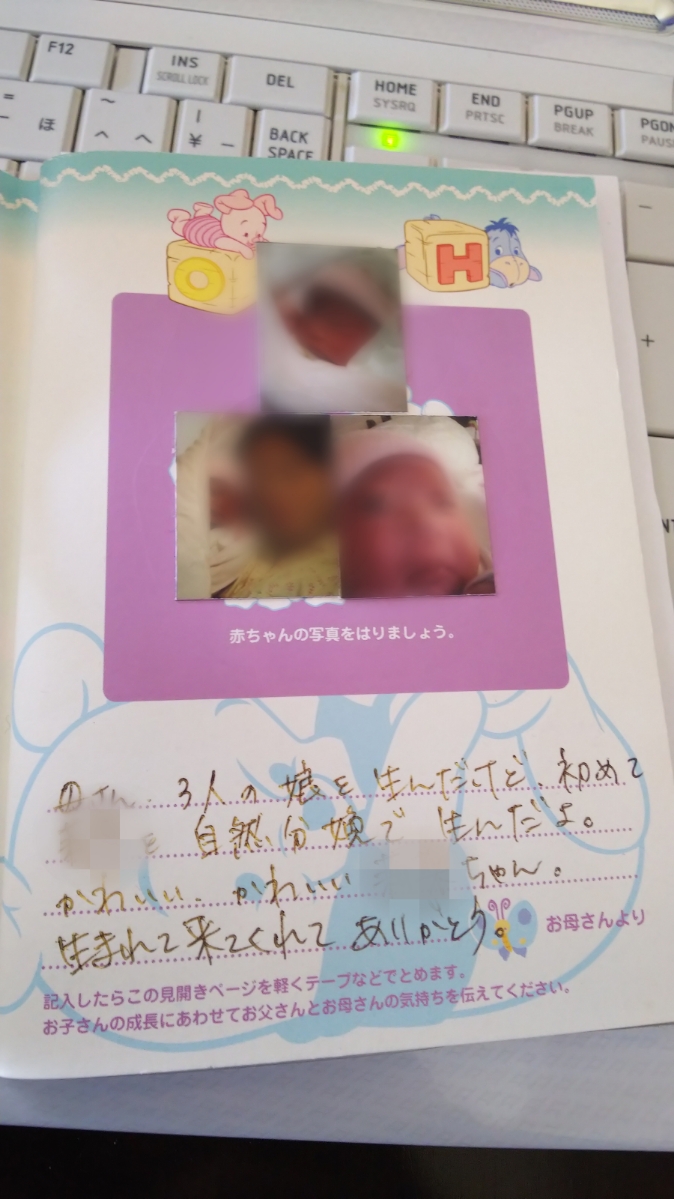 F12
INS
SCROLL LOCK
DEL
HOME
SYSRQ
END
PRTSC
PGUP
BREAK
PGDN
PAUS
= ほ
~ へ へ
| ¥ _
BACK SPACE
−
+
O
H
赤ちゃんの写真をはりましょう。
母さん、3人の娘を生んだけど、初めて
自然分娩で 生んだよ。
かわいい、かわいい ちゃん。
生まれて来てくれて ありがとう。
お母さんより
記入したらこの見開きページを軽くテープなどでとめます。
お子さんの成長にあわせてお父さんとお母さんの気持ちを伝えてください。